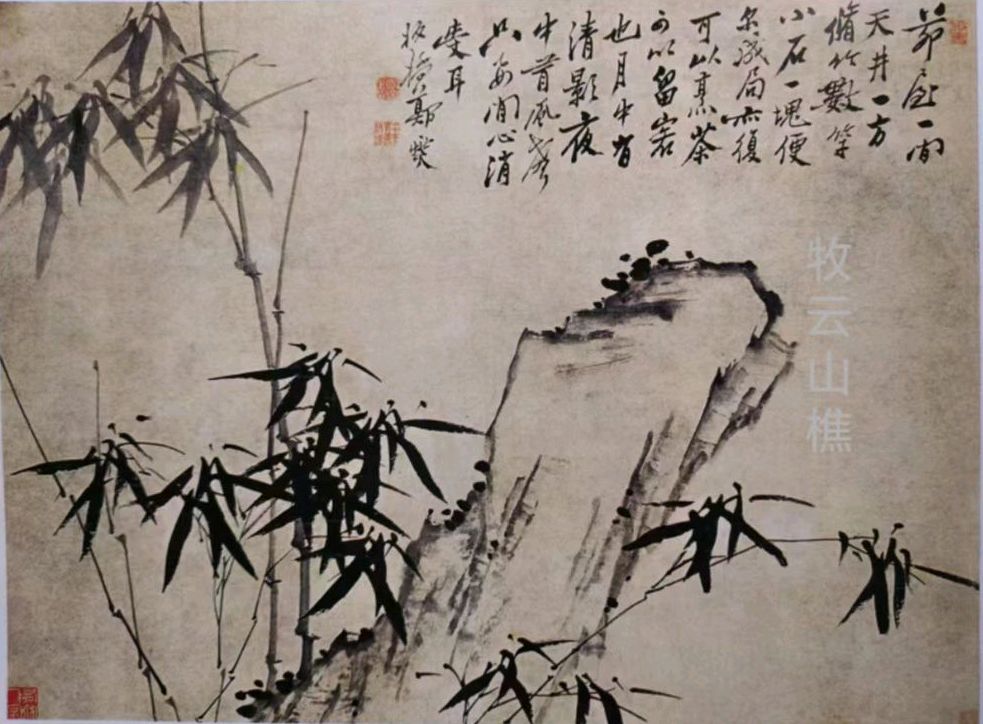 茅屋一間
天井一方
脩竹數竿
小石一塊便
尔成局亦復
可以烹茶
可以留客
也月中有
清影夜
中有風聲
只要閒心消
受耳
板橋鄭燮
牧云山樵